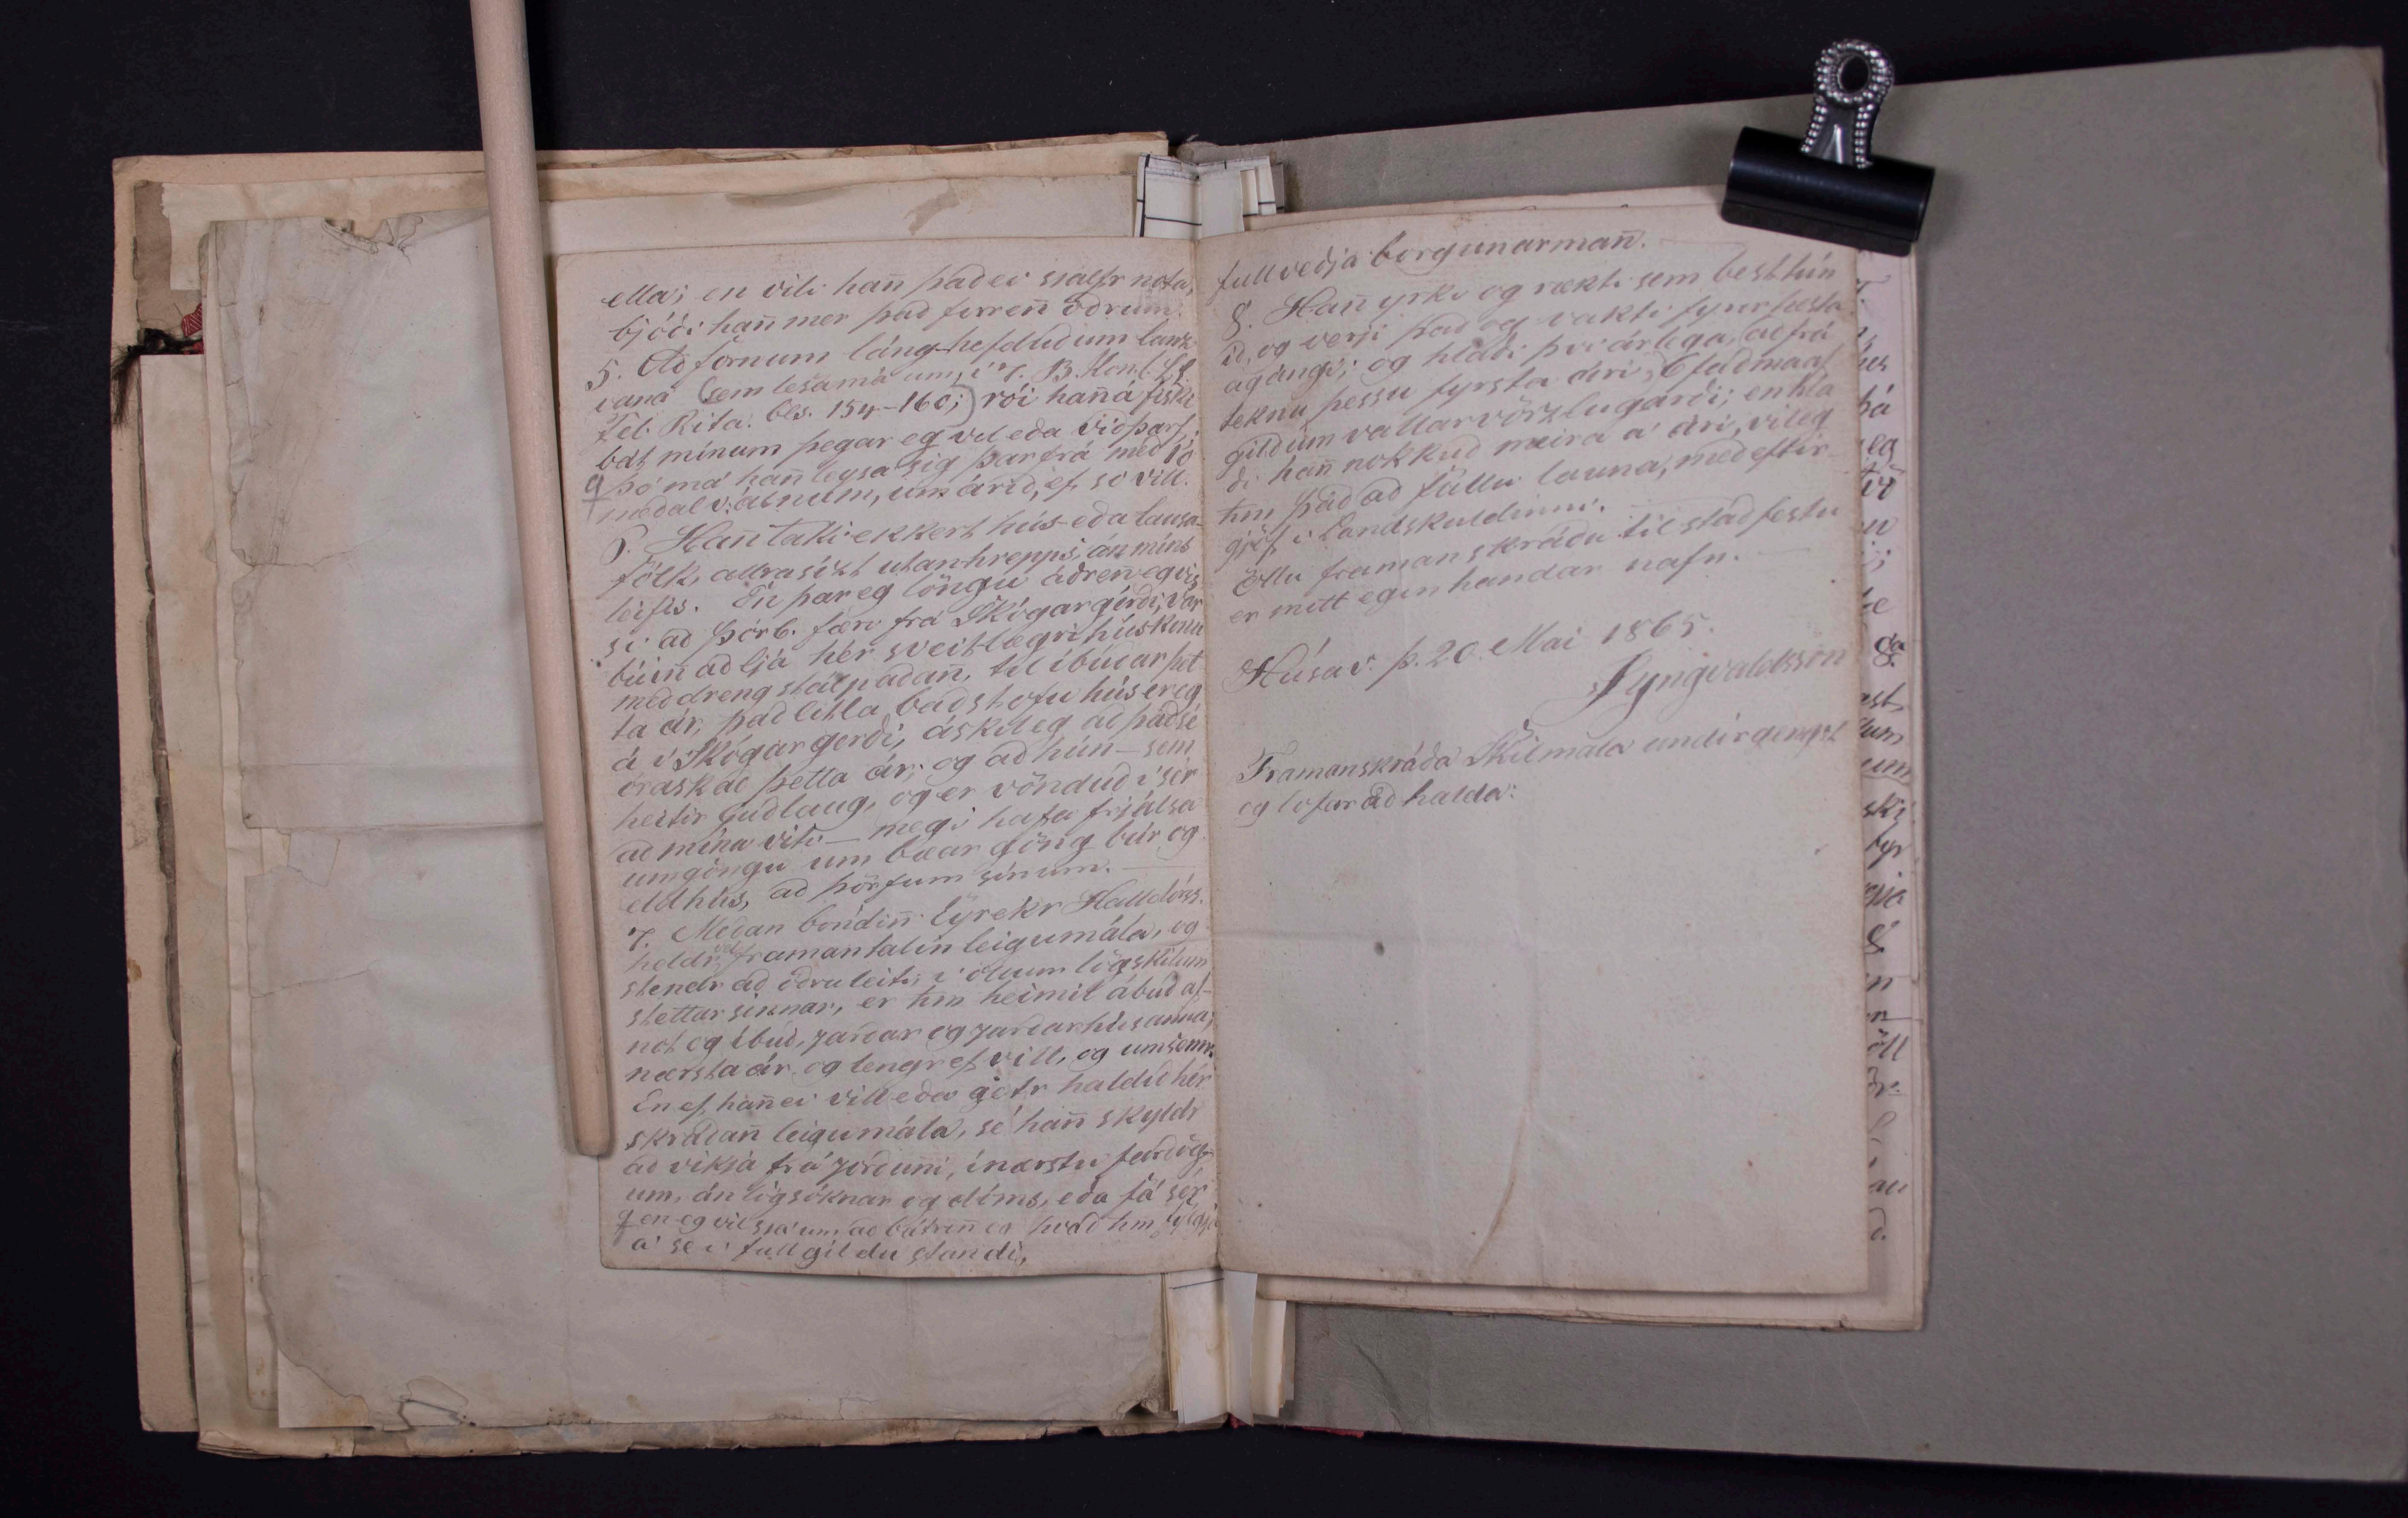 ella; en vili hañ það ei sjalfr nota,
bjóði hañ mer það fyrren̄ öðrum.
5. Að fornum láng-hefduðum lanz
vana (sem lesa má um, í 7. B. Kon. l. ll.
Fél. Rita. bls. 154-160;) rói hañ á fiski
bát mínum þegar eg vil eða viðþarf,
þó má hañ leysa sig þar frá með 10
meðal v: átnum, um árið, ef so vill.
6. Hañ taki ekkert hús- eða lausa-
fólk, allrasízt utanhrepps, án míns
leifis. En þar eg löngu áðren̄ eg vis
si að Þórb. færi frá Skógargérði, var
búin að ljá hér sveitlægri húskonu
með dreng stálpaðañ, til íbúðar þet
ta ár, það litla baðstofu hús er eg
á í Skógargerði, áskil eg að það sé
óraskað þetta ár; og að hún - sem
heitir Guðlaug, og er vönduð í sér
að mína viti - megi hafa frjálsa
umgöngu um bæar göng búr og
eldhús, að þörfum sínum. -
7. Meðan bóndiñ Eyrekr Halldórss.
heldr vel framantalin leigumála, og
stendr að öðruleiti í öllum lögskilum
stettar sinnar, er hm heimil ábúð af-
not og íbúð, jarðar og jarðarhúsanna,
nærsta ár og lengr ef vill, og umsemr.
En ef hañ ei vill eða getr haldið hér
skráðañ leigumála, sé hañ skyldr
að vikja frá jörðuñi, í nærstu fardög-
um, án lögsóknar og dóms, eða fá sér
en eg vil sjá um, að bátren̄ og hvað hm fylgja
á sé í fullgildu standi,
fullveðja borgunarmañ.
8. Hañ yrki og rækti sem best tún
ið, og verji það og vakti fyrir hesta
agángi; og hlaði því árlega, (alfrá
teknu þessu fyrsta ári,) 6 faðma af
gildum vallarvörzlugarði; en hla
ði hañ nokkuð meira á ári, vil eg
hm það að fullu launa, með eftir-
gjöf í Landskuldinni. -
Öllu framanskráðu til staðfestu
er mitt egin handar nafn. -
Húsav. þ. 20. Mai 1865.
SIyngvaldsson
Framanskráða Skilmála undirgengst
og lofar að halda: